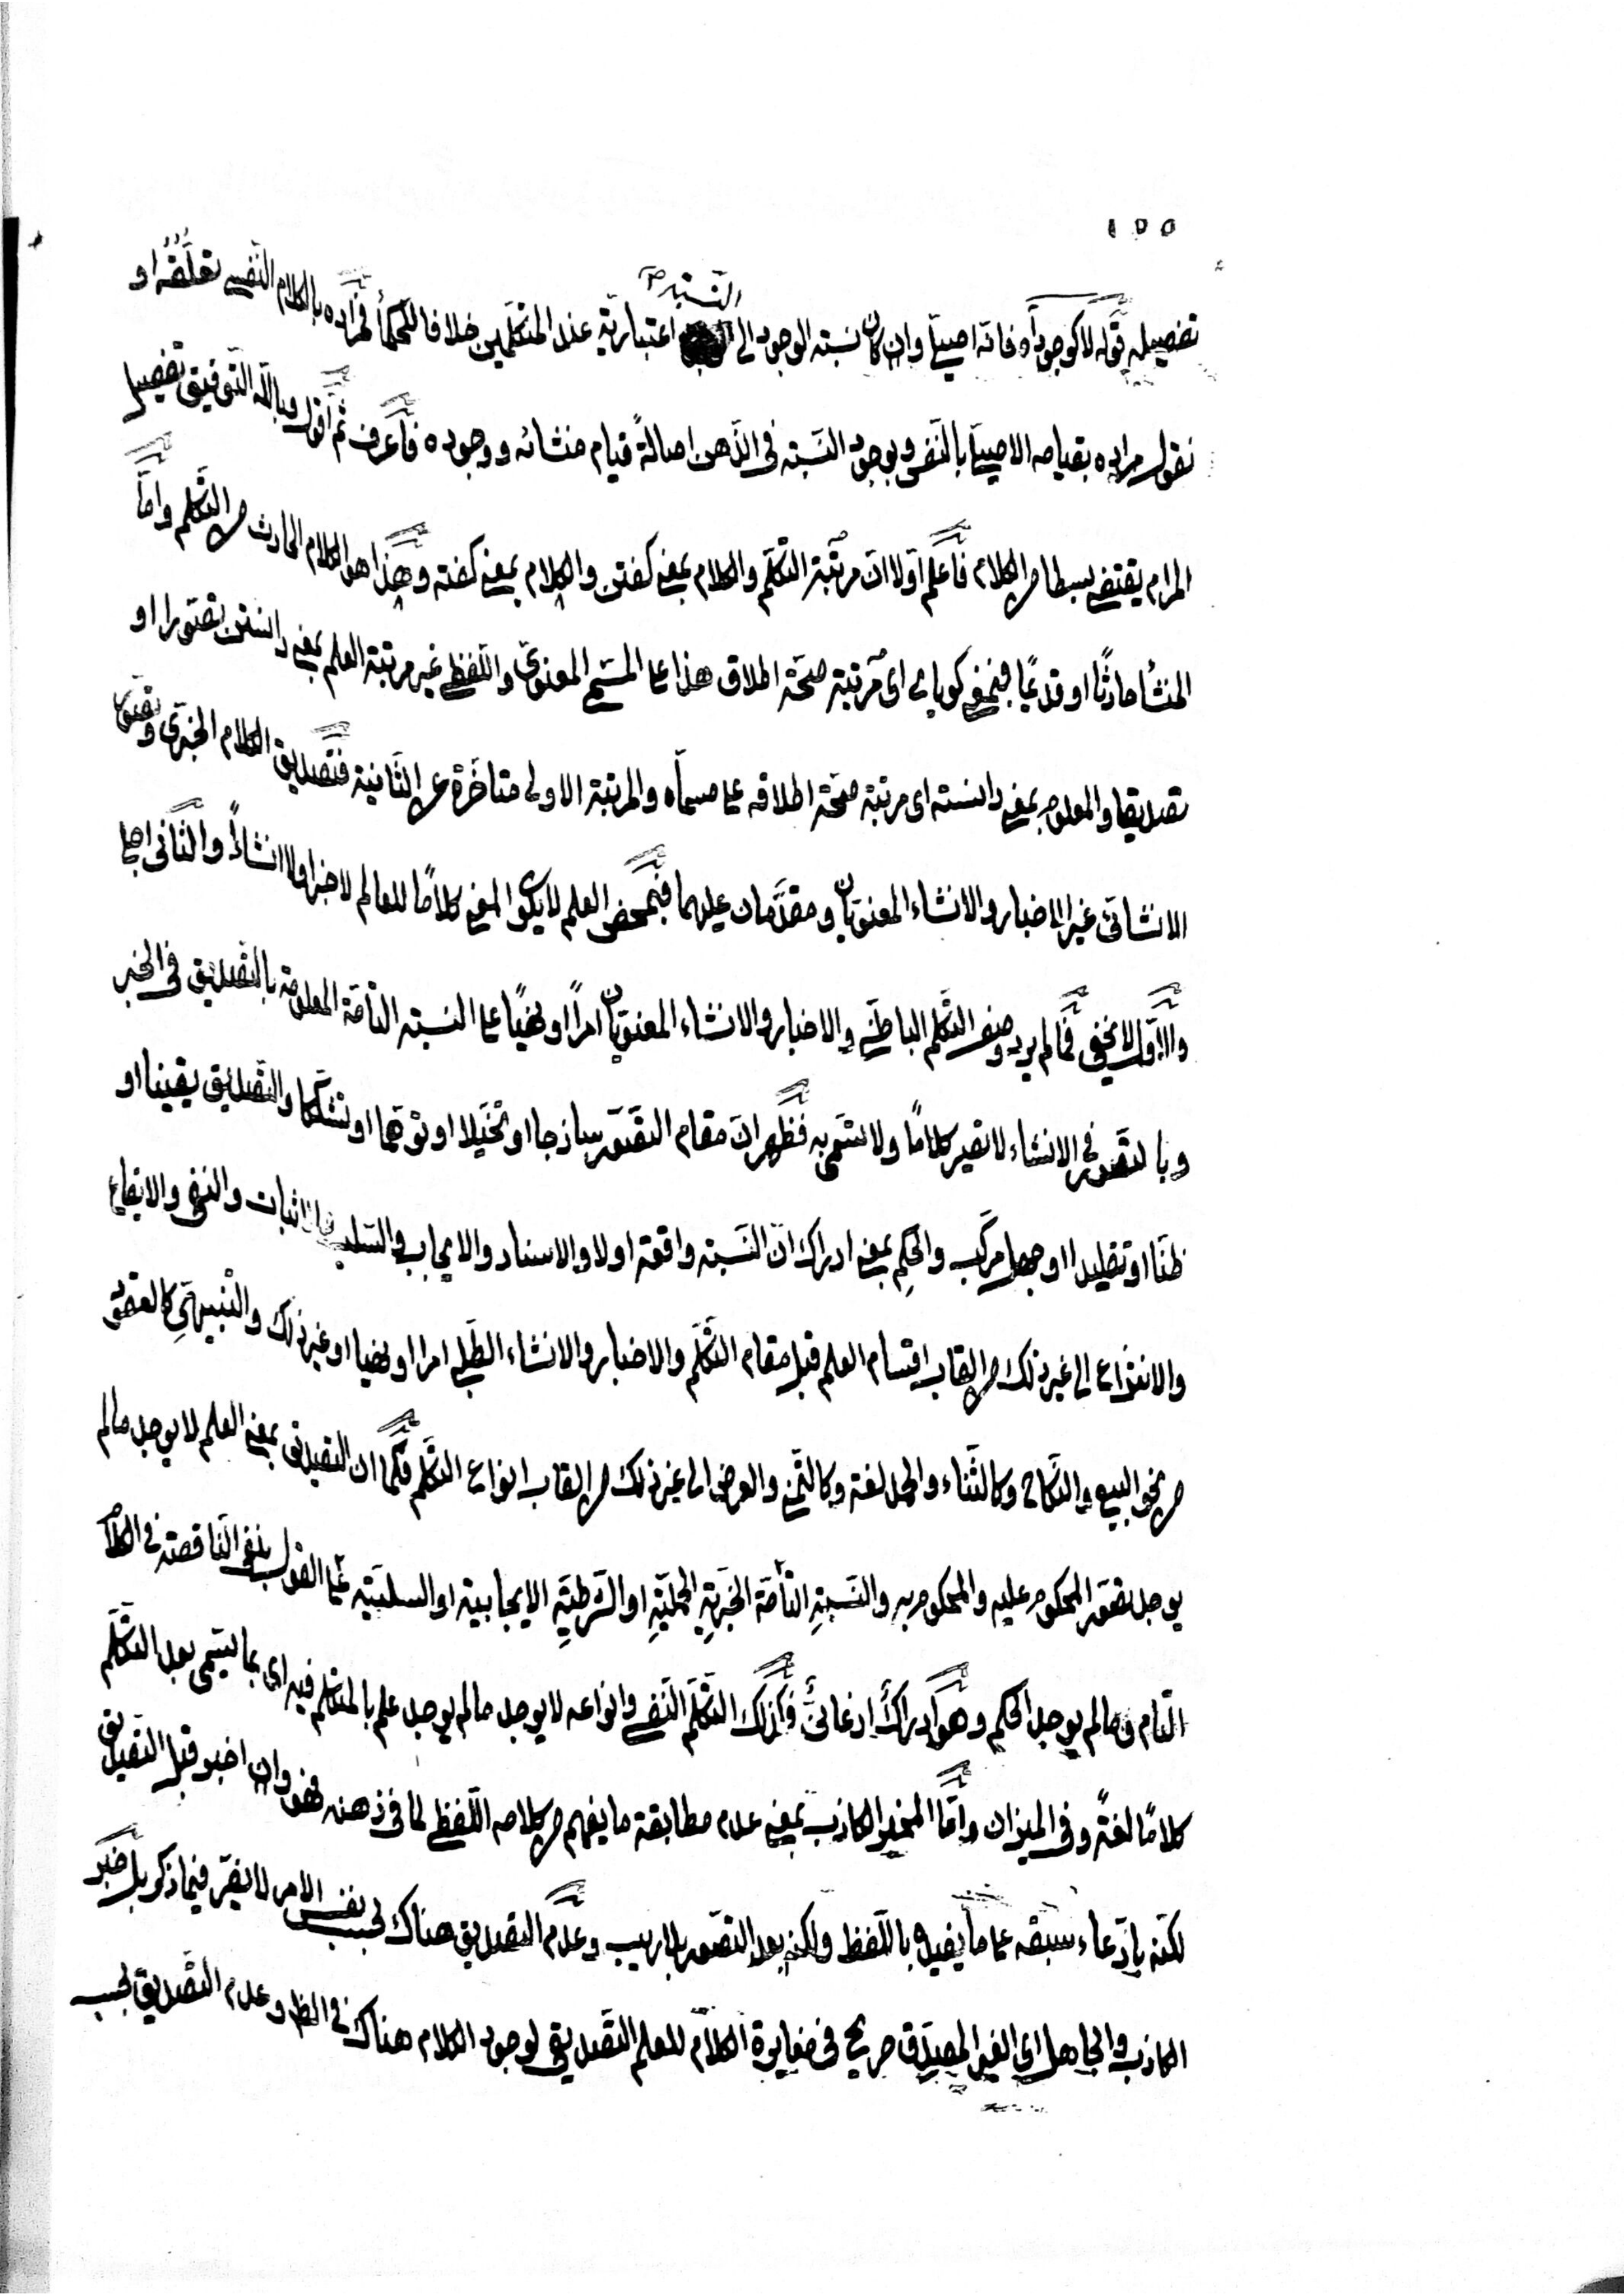 ١٥٥
تفصيله قوله لا كوجوده آه فانه اصيل وان كان نسبته الوجود الى النسبة صح اعتبارية عند المتكلمين خلافا للحكماء فمراده بالكلام النفسي تعلقه او
نقول مراده بقيامه الاصيل بالنفس وبوجود النسبة في الذهن اصالةً قيام منشائه ووجوده فاعرف ثم اقول وبالله التوفيق تفصيل
المرام يقتضي بسطا من الكلام فاعلم اولا ان مرتبة التكلم والكلام بمعنى كفتن والكلام بمعنى كفته وهذا هو الكلام الحادث من التكلم واما
المنشأ حادثًا او قديمًا فبمعنى كويايى اى مرتبة صحة اطلاق هذا على المسمى المعنوي واللفظي غير مرتبة العلم بمعنى دانستن تصورا او
تصديقا والمعلوم بمعنى دانسته اى مرتبة صحة اطلاقه على مسماه والمرتبة الاولى متاخرة عن الثانية فتصديق الكلام الخبري وتصور
الانشائي غير الاخبار والانشاء المعنويان ومقدمان عليهما فبمحض العلم لا يكون المعنى كلامًا للعالم لا خبرا ولا انشاءً والثاني اجلى
والاول لا يخفى فما لم يرد وصف التكلم الباطني والاخبار والانشاء المعنويان امرًا او نهيًا على النسبة التامة المعلومة بالتصديق في الخبر
وبالتصور في الانشاء لا تصير كلامًا ولا تسمى به فظهر ان مقام التصور ساذجا او تخيلا او توهما او تشككا والتصديق يقينا او
ظنا او تقليدا او جهل مركب والحكم بمعنى ادراك ان النسبة واقعة او لا والاسناد والايجاب والسلب والاثبات والنفي والايقاع
والانتزاع الى غير ذلك من القاب اقسام العلم قبل مقام التكلم والاخبار والانشاء الطلبي امرا او نهيا او غير ذلك والتنبيهي كالعقود
من نحو البيع والنكاح وكالثناء والحمد لغة وكالتمني والعرض الى غير ذلك من القاب انواع التكلم فكما ان التصديق بمعنى العلم لا يوجد ما لم
يوجد تصور المحكوم عليه والمحكوم به والنسبة التامة الخبرية الحملية او الشرطية الايجابية او السلبية على القول بنفي الناقصة في الكلام
التام وما لم يوجد الحكم وهو ادراكٌ اذعانيٌ فكذلك التكلم النفسي وانواعه لا يوجد ما لم يوجد علم بالمتكلم فيه اى بما يسمى بعد التكلم
كلامًا لغةً وفي الميزان واما المخبر الكاذب بمعنى عدم مطابقة ما يفهم من كلامه اللفظي لما في ذهنه فهو وان اخبر قبل التصديق
لكنه بادعاء سبقه على ما يفيده باللفظ ولكنه بعد التصور بلا ريب وعدم التصديق هناك بحسب نفس الامر لا يضر فيما ذكر بل خبر
الكاذب والجاهل اى الغير المصدق صريح في مغايرة الكلام للعلم التصديقي لوجود الكلام هناك في الظ وعدم التصديق بحسب